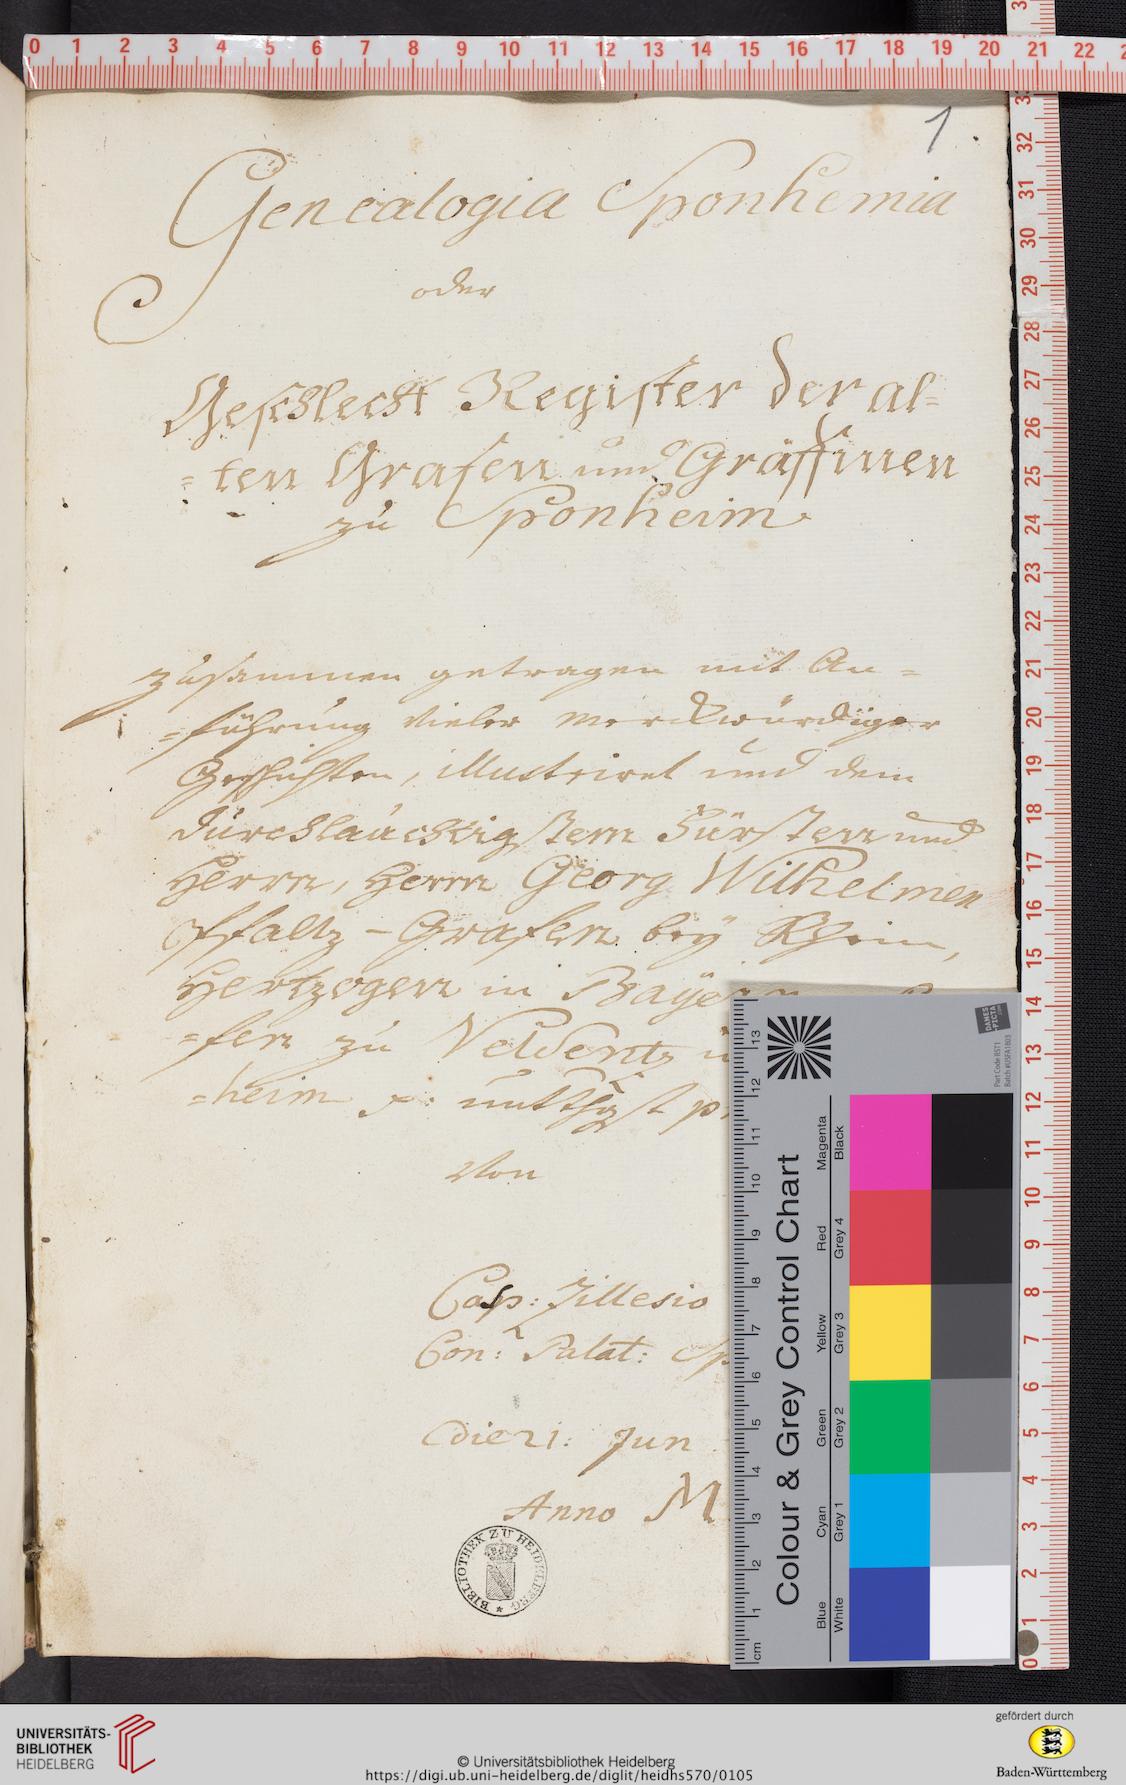 1
Genealogia Sponhemia
oder
Geschlecht Register der al=
=ten Grafen und Gräffinen
zu Sponheim
zusammen getragen mit An=
=führung vieler merckwürdiger
Geschichten, illustriret und dem
Durchlauchtigstem Fürsten und
Herrn, Herrn Georg Wilhelmen
Pfaltz-Grafen bey Rhein,
Hertzogen in Bayern
=fen zu Veldentz
=heim
Von
Casp: Zillesio
Con: Palat: Sp
die 21: Jun
Anno M
BIBLIOTHEK ZU HEIDELBERG
Colour & Grey Control Chart
Blue Cyan Green Yellow Red Magenta
White Grey 1 Grey 2 Grey 3 Grey 4 Black
cm 1 2 3 4 5 6 7 8 9 10 11 12 13
DANES
PICTA
.com
Part Code BST1
0 1 2 3 4 5 6 7 8 9 10 11 12 13 14 15 16 17 18 19 20 21 22
32 31 30 29 28 27 26 25 24 23 22 21 20 19 18 17 16 15 14 13 12 11 10 9 8 7 6 5 4 3 2 1 0
UNIVERSITÄTS-
BIBLIOTHEK
HEIDELBERG
© Universitätsbibliothek Heidelberg
https://digi.ub.uni-heidelberg.de/diglit/heidhs570/0105
gefördert durch
Baden-Württemberg